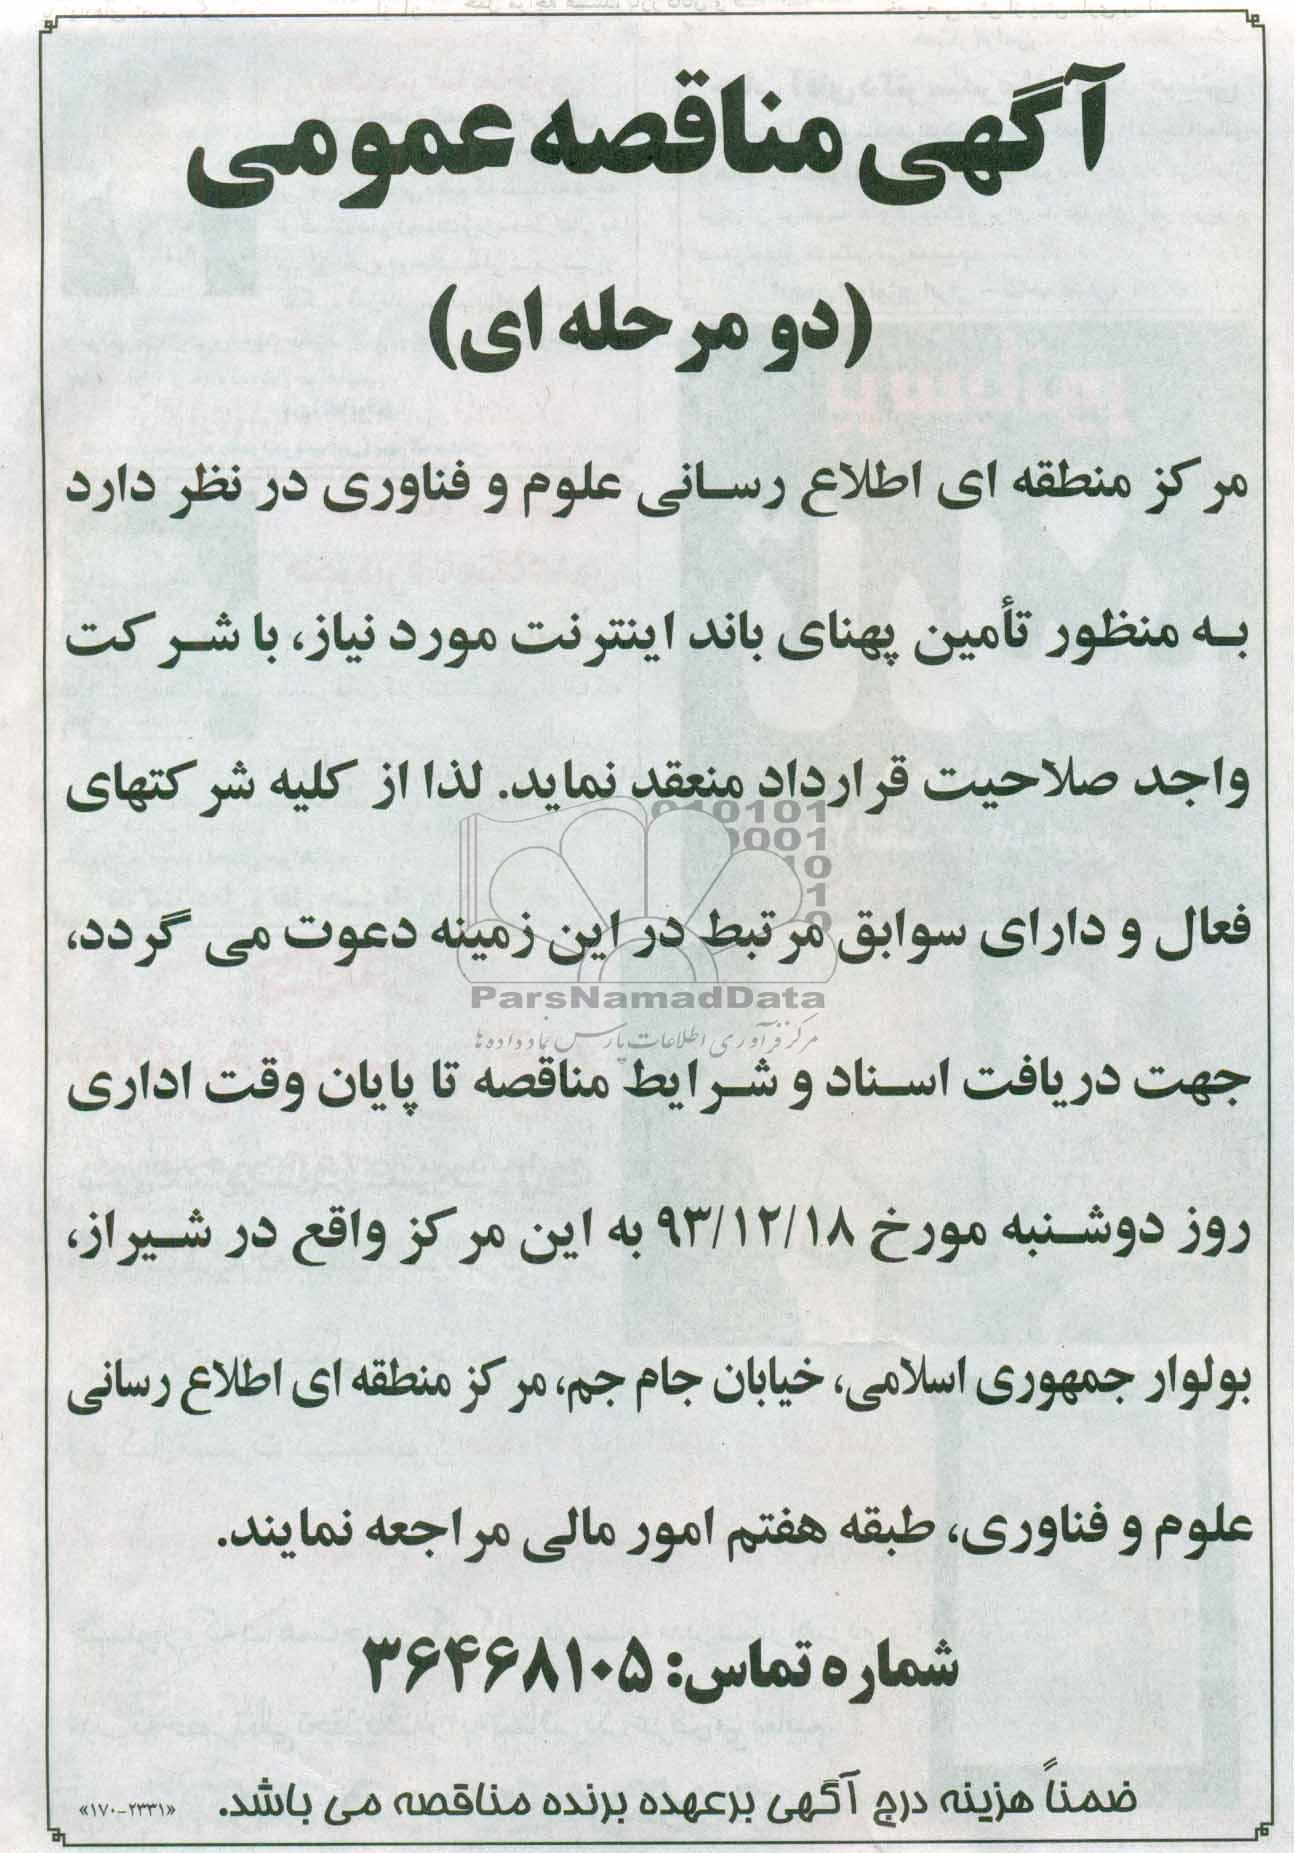 آگهی مناقصه عمومی
(دو مرحله ای)
مرکز منطقه ای اطلاع رسانی علوم و فناوری در نظر دارد
به منظور تأمین پهنای باند اینترنت مورد نیاز، با شرکت
واجد صلاحیت قرارداد منعقد نماید. لذا از کلیه شرکتهای
فعال و دارای سوابق مرتبط در این زمینه دعوت می گردد،
جهت دریافت اسناد و شرایط مناقصه تا پایان وقت اداری
روز دوشنبه مورخ ۹۳/۱۲/۱۸ به این مرکز واقع در شیراز،
بولوار جمهوری اسلامی، خیابان جام جم، مرکز منطقه ای اطلاع رسانی
علوم و فناوری، طبقه هفتم امور مالی مراجعه نمایند.
شماره تماس: ۳۶۴۶۸۱۰۵
ضمناً هزینه درج آگهی برعهده برنده مناقصه می باشد.
«۱۷۰-۲۳۳۱»
010101
0001
10
1
0
ParsNamadData
مرکز فرآوری اطلاعات پارس نماد داده ها